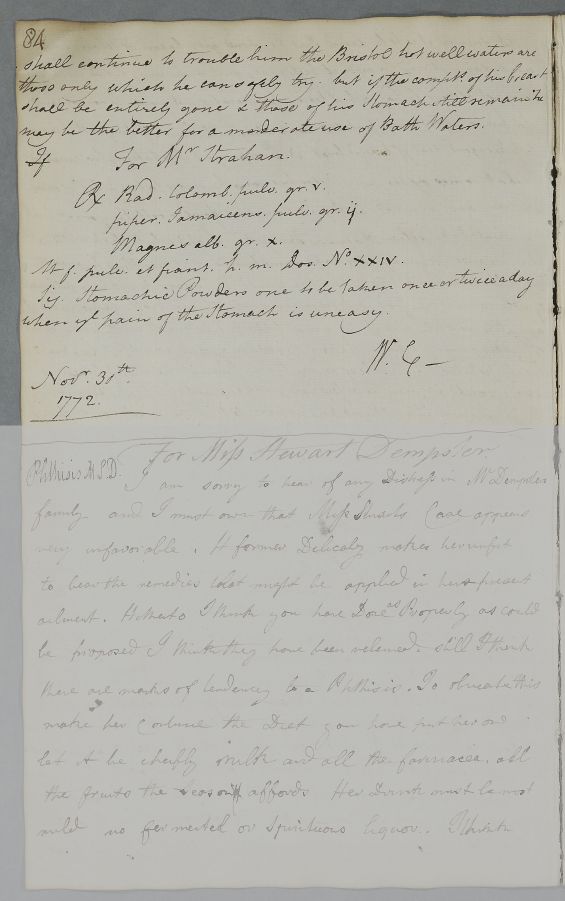 84
shall continue to trouble him the Bristol hot well waters are
those only which he can safely try. but if the complts of his breast
shall be entirely gone & those of his Stomach still remain he
may be the better for a moderate use of Bath Waters.
If For Mr Strahan.
Rx Rad. Colomb. pulv. gr. v.
piper. Jamaicens. pulv. gr. ij.
Magnes alb. gr. x.
M f. pulv. et fiant. h. m. Dos. No. XXIV.
Sig. Stomachic Powders one to be taken once or twice a day
when ye pain of the Stomach is uneasy.
W. C
Novr. 30th.
1772.
For Miss Stewart Dempster
Phthisis M.S.D.
I am sorry to hear of any Distress in Mr Dempster
family and I must own that Miss Case appears
very unfavorable. former Delicacy makes her unfit
to bear the remedies that might be applied in her present
ailment. Hitherto I think you have Done as Properly as could
be proposed I think they have been relieved. still I think
there are marks of tendency to a Phthisis. To obviate this
make her Continue the Diet you have put her on
let it be cheifly milk and all the farinacea. all
the fruits the season affords Her Drink must be most
mild no fermented or Spirituous liquor. I think